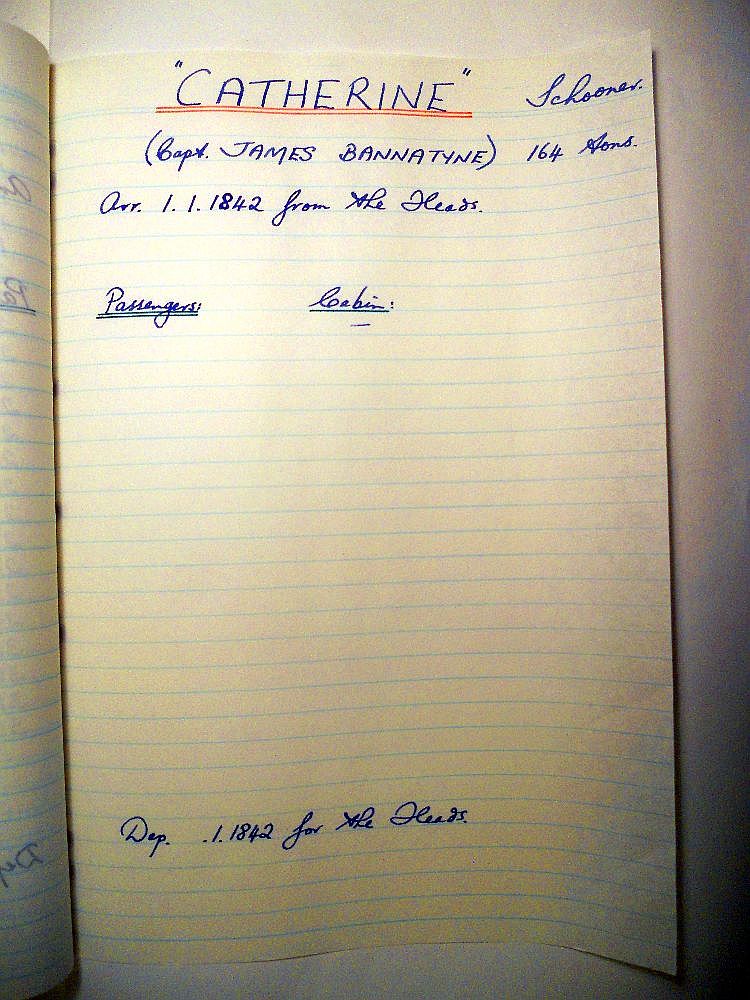 "CATHERINE" Schooner.
(Capt. JAMES BANNATYNE) 164 tons.
Arr. 1.1.1842 from the Heads.
Passengers: Cabin:
—
Dep. .1.1842 for the Heads.